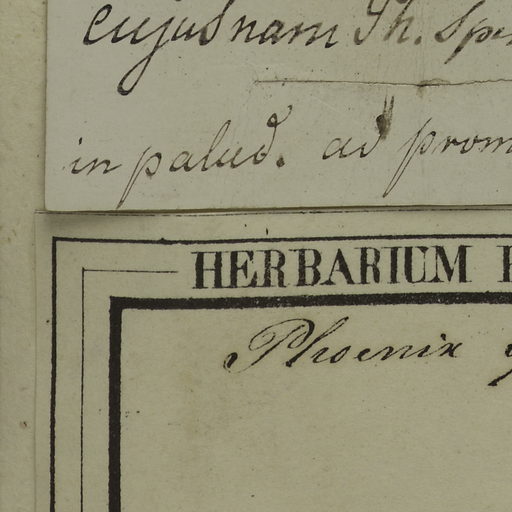 cujusnam Th. Sp
in palud. ad prom
HERBARIUM
Phoenix